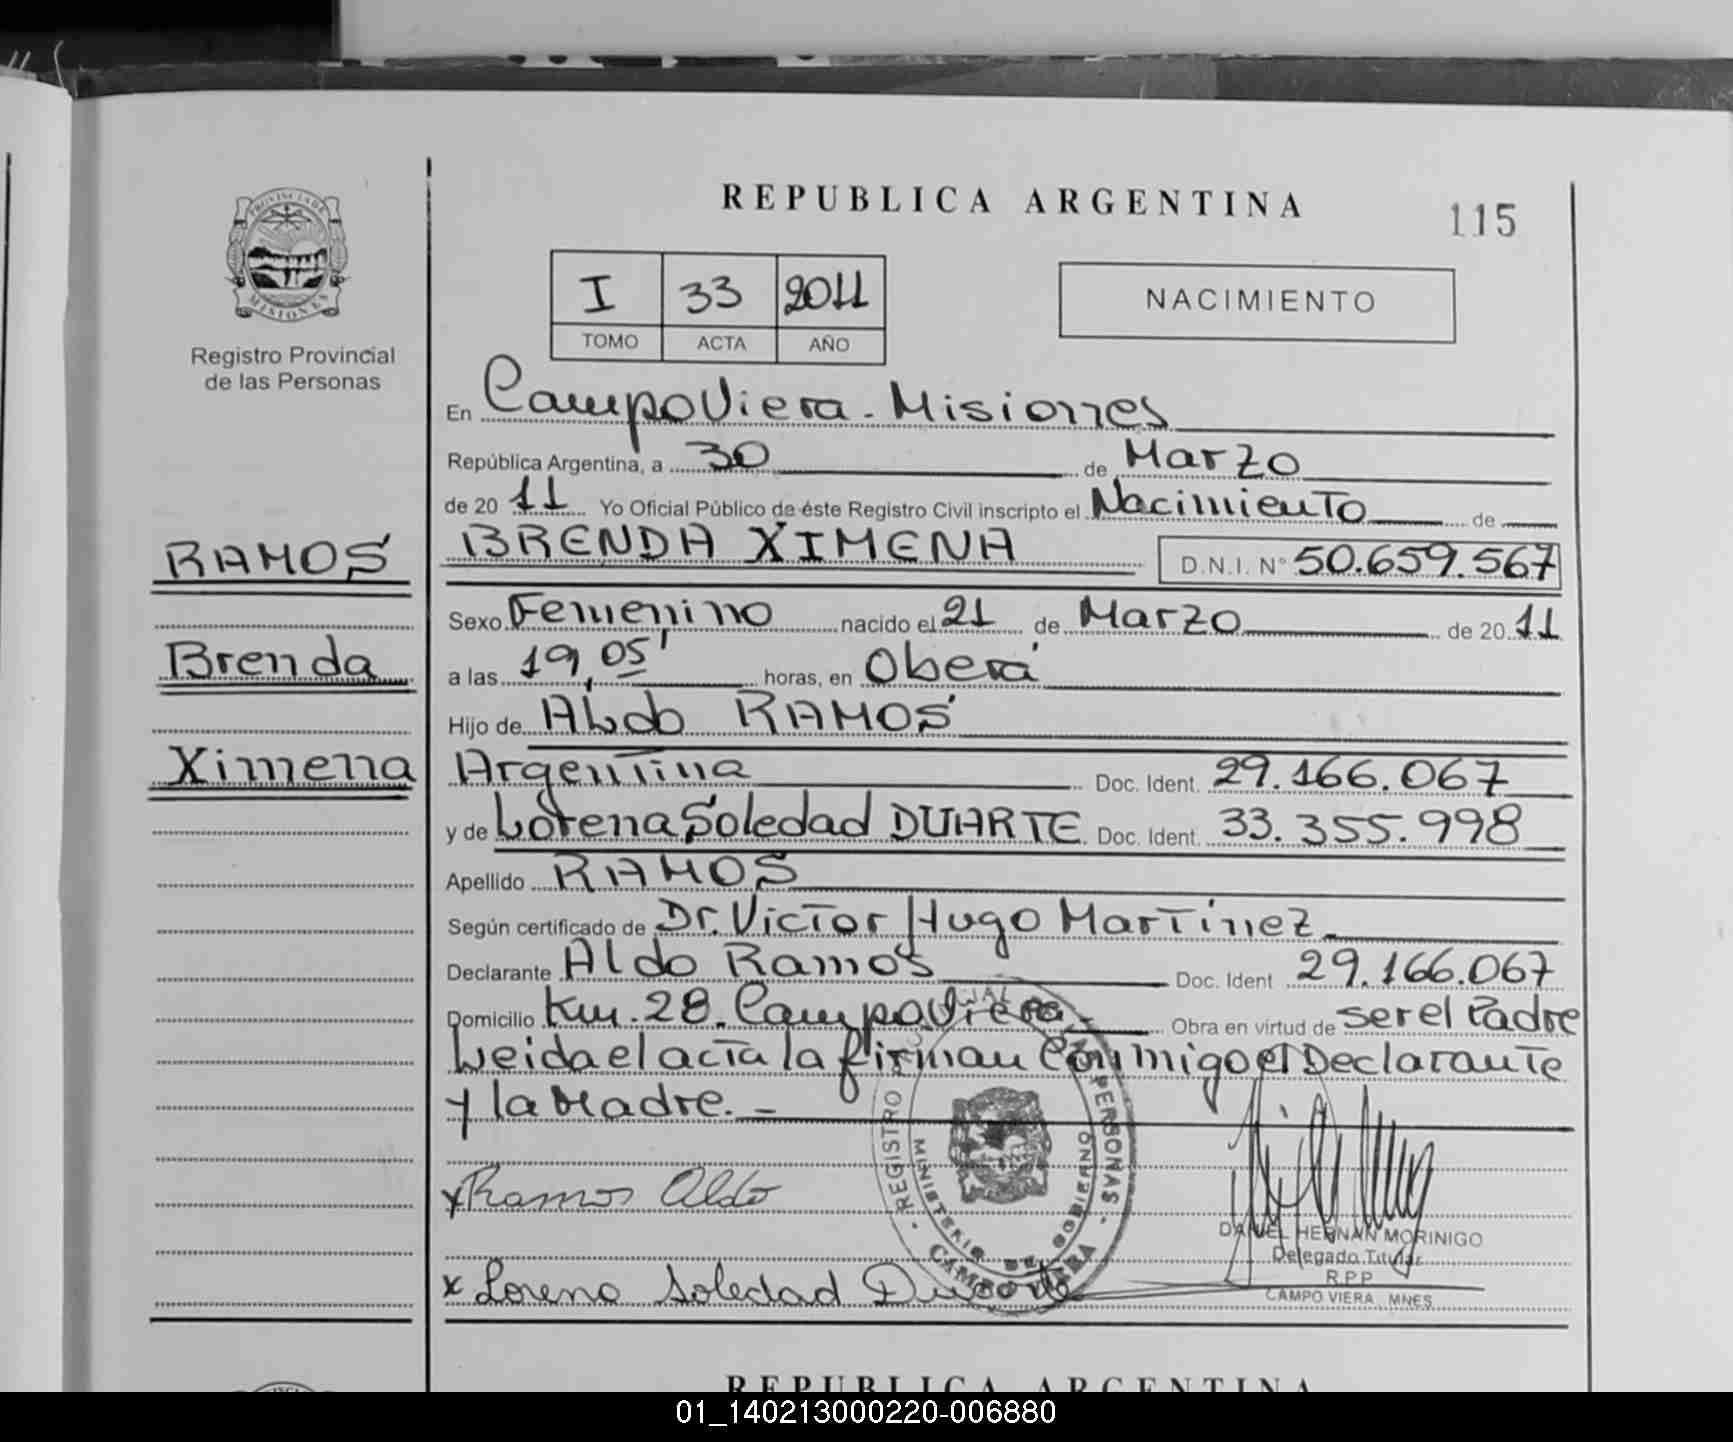 REPUBLICA ARGENTINA
115
PROVINCIA DE
MISIONES
Registro Provincial
de las Personas
I 33 2011
TOMO ACTA AÑO
NACIMIENTO
En Campo Viera - Misiones
República Argentina, a 30 de Marzo
de 20 11 Yo Oficial Público de éste Registro Civil inscripto el Nacimiento de
BRENDA XIMENA D.N.I. N° 50.659.567
RAMOS
Brenda
Ximena
Sexo Femenino nacido el 21 de Marzo de 20 11
a las 19,05' horas, en Oberá
Hijo de Aldo RAMOS
Argentina Doc. Ident. 29.166.067
y de Lorena Soledad DUARTE Doc. Ident. 33.355.998
Apellido RAMOS
Según certificado de Dr. Victor Hugo Martinez
Declarante Aldo Ramos Doc. Ident 29.166.067
Domicilio Km. 28. Campo Viera - Obra en virtud de ser el Padre
Leida el acta la firman Conmigo el Declarante
y la Madre. -
x Ramos Aldo
x Lorena Soledad Duarte
REGISTRO PERSONAS
MINISTERIO DE GOBIERNO
CAMPO VIERA
DANIEL HERNAN MORINIGO
Delegado Titular
R.P.P
CAMPO VIERA MNES
REPUBLICA ARGENTINA
01_140213000220-006880